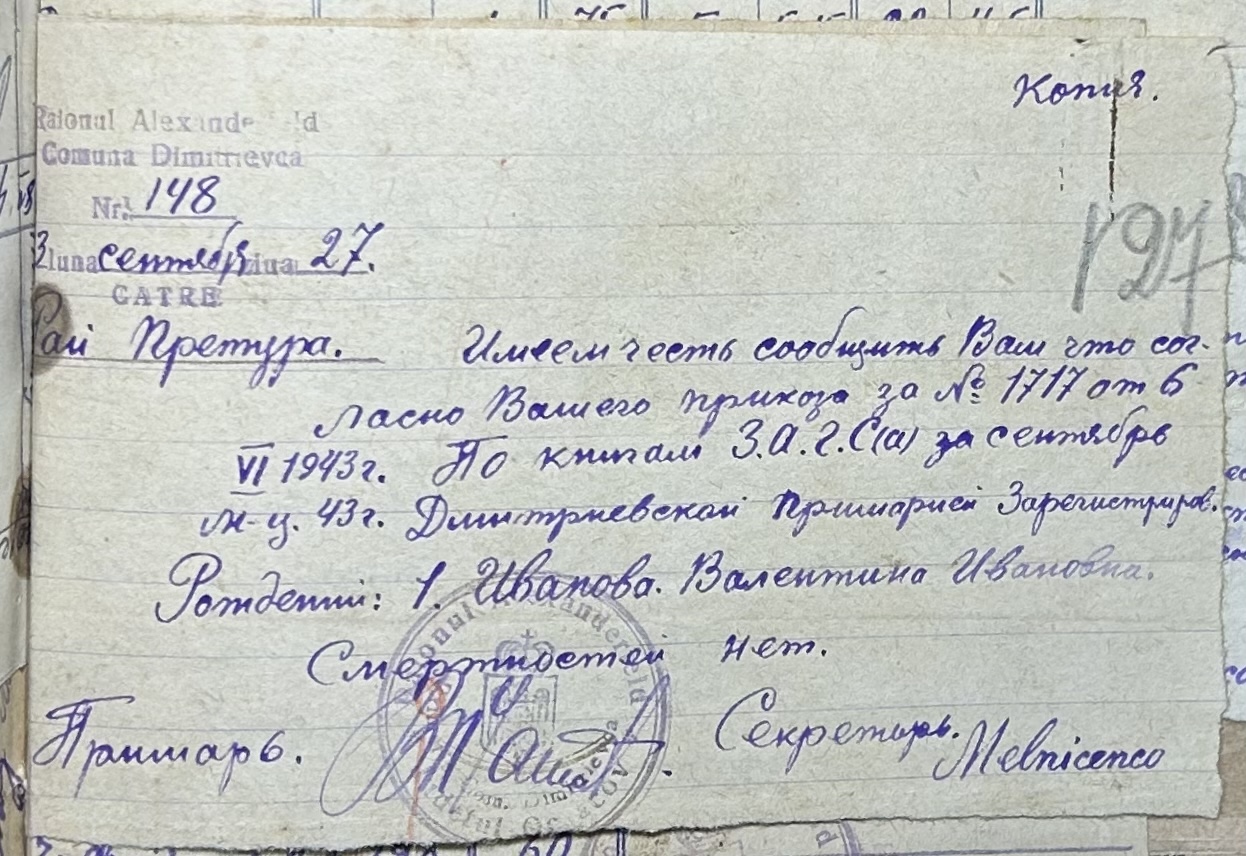 Копия.
Raionul Alexande ld
Comuna Dimitrievca
Nr. 148
luna сентябрь ziua 27.
CATRE
197
Рай Претура. Имеем честь сообщить Вам что сог-
ласно Вашего приказа за № 1717 от 6
VI 1943 г. По книгам З.А.Г.С(а) за сентябрь
м-ц. 43 г. Дмитриевской Примарией Зарегистриров.
Рождений: 1. Иванова. Валентина Ивановна.
Смертностей нет.
Примарь. Секретарь. Melnicenco
Raionul Alexanderfeld